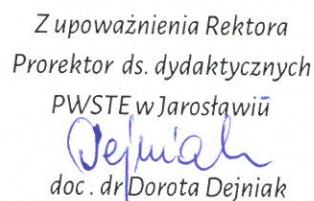 Z upoważnienia Rektora
Prorektor ds. dydaktycznych
PWSTE w Jarosławiu
Dejniak
doc. dr Dorota Dejniak